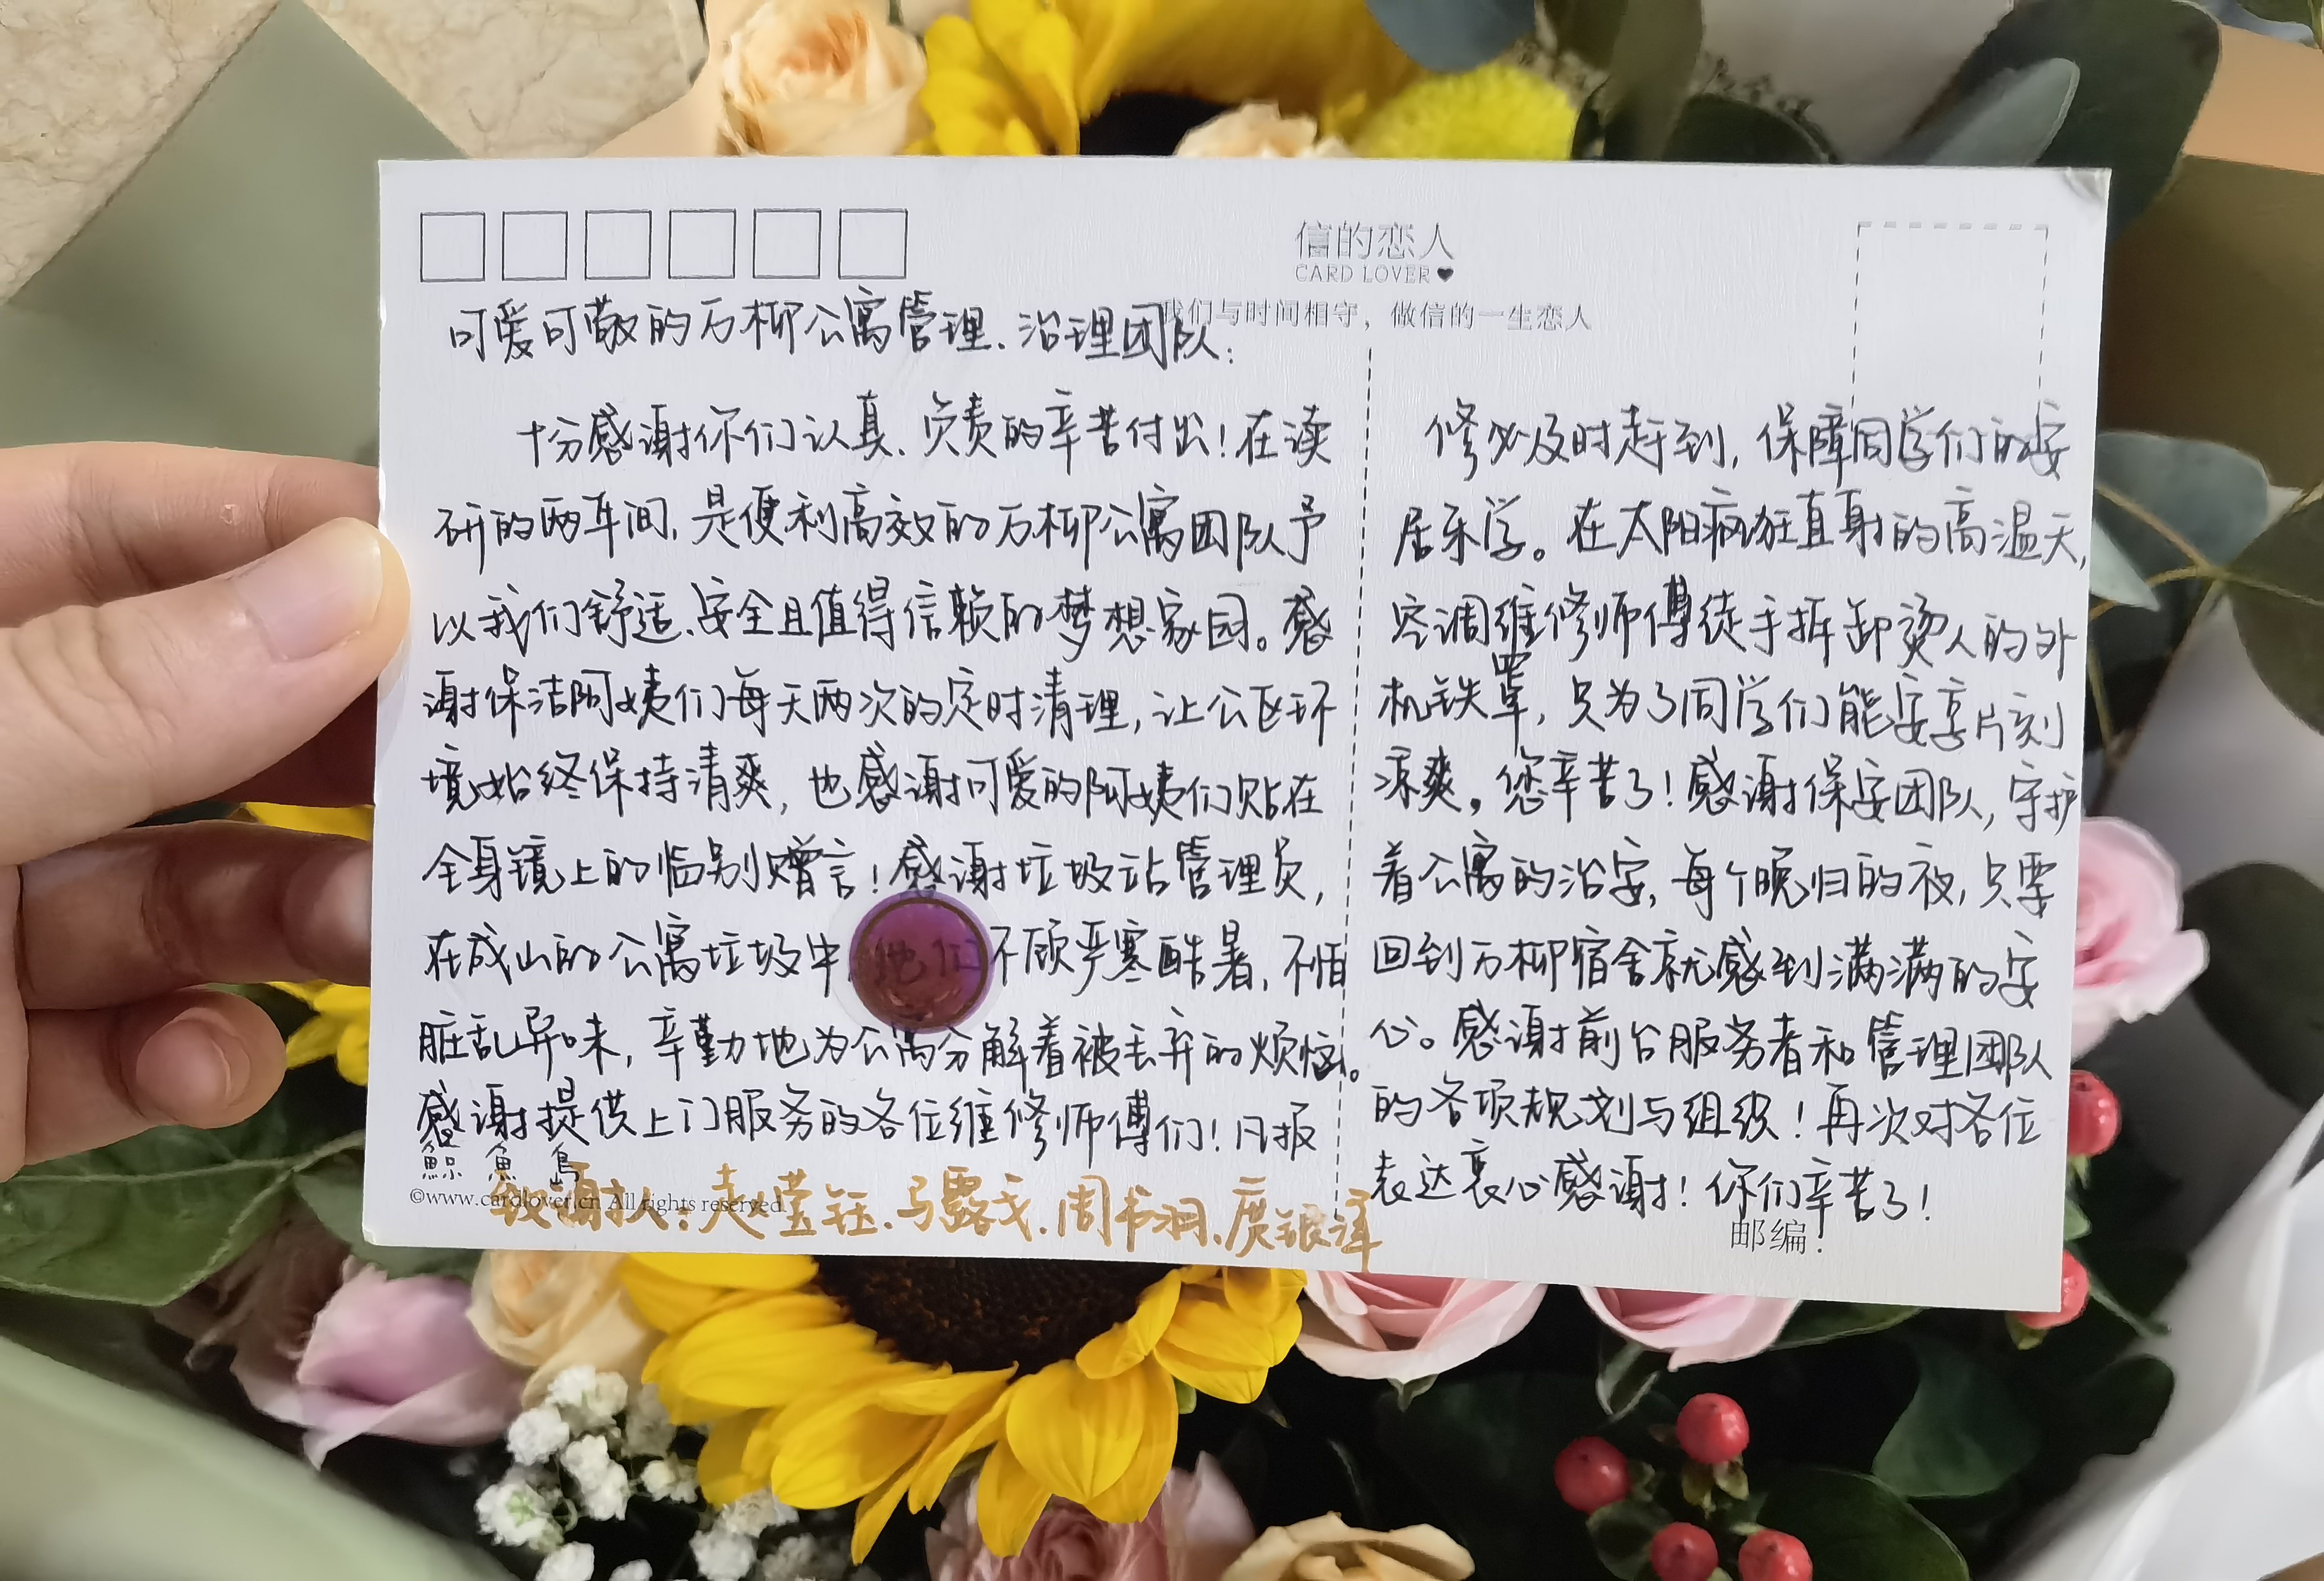 信的恋人
CARD LOVER
我们与时间相守，做信的一生恋人
可爱可敬的万柳公寓管理、治理团队：
十分感谢你们认真、负责的辛苦付出！在读
研的两年间，是便利高效的万柳公寓团队予
以我们舒适、安全且值得信赖的梦想家园。感
谢保洁阿姨们每天两次的定时清理，让公区环
境始终保持清爽，也感谢可爱的阿姨们贴在
全身镜上的临别赠言！感谢垃圾站管理员，
在成山的公寓垃圾中他们不顾严寒酷暑，不怕
脏乱异味，辛勤地为公寓分解着被丢弃的烦恼。
感谢提供上门服务的各位维修师傅们！凡报
修必及时赶到，保障同学们的安
居乐学。在太阳疯狂直射的高温天，
空调维修师傅徒手拆卸烫人的外
机铁罩，只为了同学们能安享片刻
凉爽，您辛苦了！感谢保安团队，守护
着公寓的治安，每个晚归的夜，只要
回到万柳宿舍就感到满满的安
心。感谢前台服务者和管理团队
的各项规划与组织！再次对各位
表达衷心感谢！你们辛苦了！
鲸魚島
©www.cardlover.cn All rights reserved
致谢人：赵莹钰、马露戈、周书羽、
邮编：